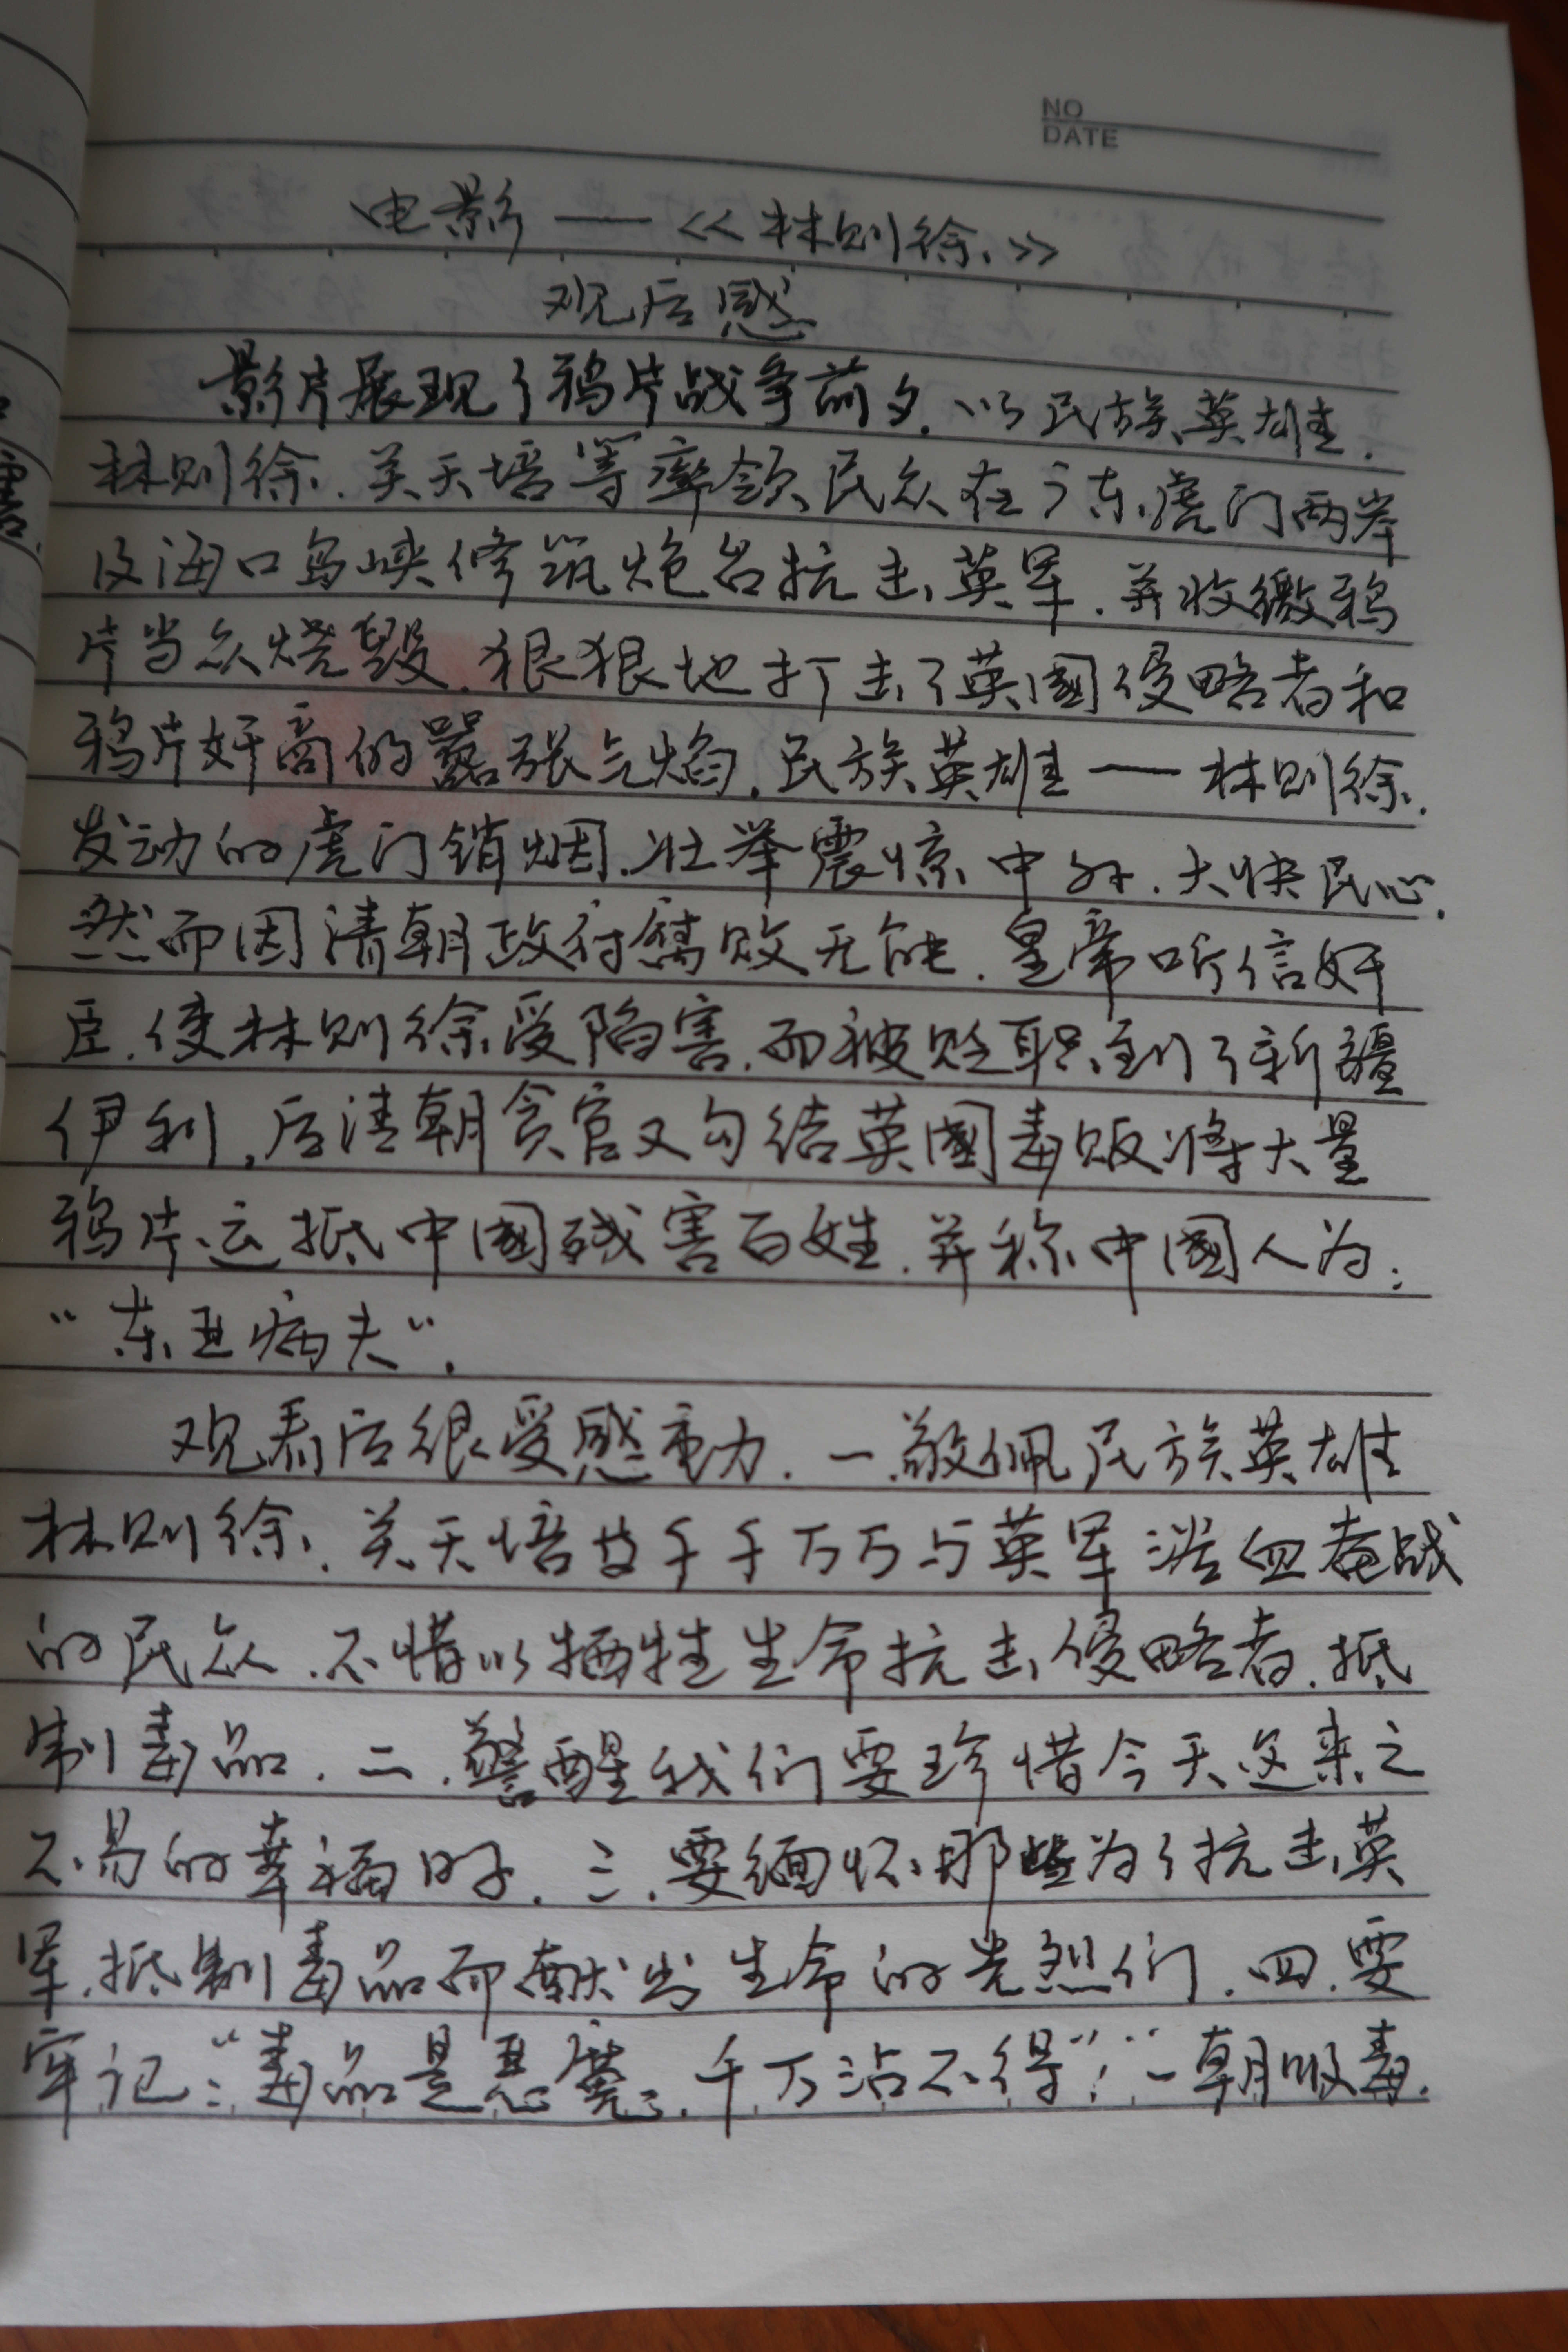 NO
DATE
电影——《林则徐》
观后感
影片展现了鸦片战争前夕.以民族英雄
林则徐.关天培等率领民众在广东虎门两岸
及海口岛峡修筑炮台抗击英军.并收缴鸦
片当众烧毁.狠狠地打击了英國侵略者和
鸦片奸商的嚣张气焰.民族英雄——林则徐.
发动的虎门销烟.壮举震惊中外.大快民心.
然而因清朝政府腐败无能.皇帝听信奸
臣.使林则徐受陷害.而被贬职到了新疆
伊利.后清朝贪官又勾结英國毒贩将大量
鸦片运抵中國残害百姓.并称中國人为:
"东亚病夫".
观看后很受感動.一.敬佩民族英雄
林则徐.关天培及千千万万与英军浴血奋战
的民众.不惜以牺牲生命抗击侵略者.抵
制毒品.二.警醒我们要珍惜今天这来之
不易的幸福日子.三.要缅怀那些为了抗击英
军.抵制毒品而献出生命的先烈们.四.要
牢记:"毒品是恶魔.千万沾不得"!"一朝吸毒.